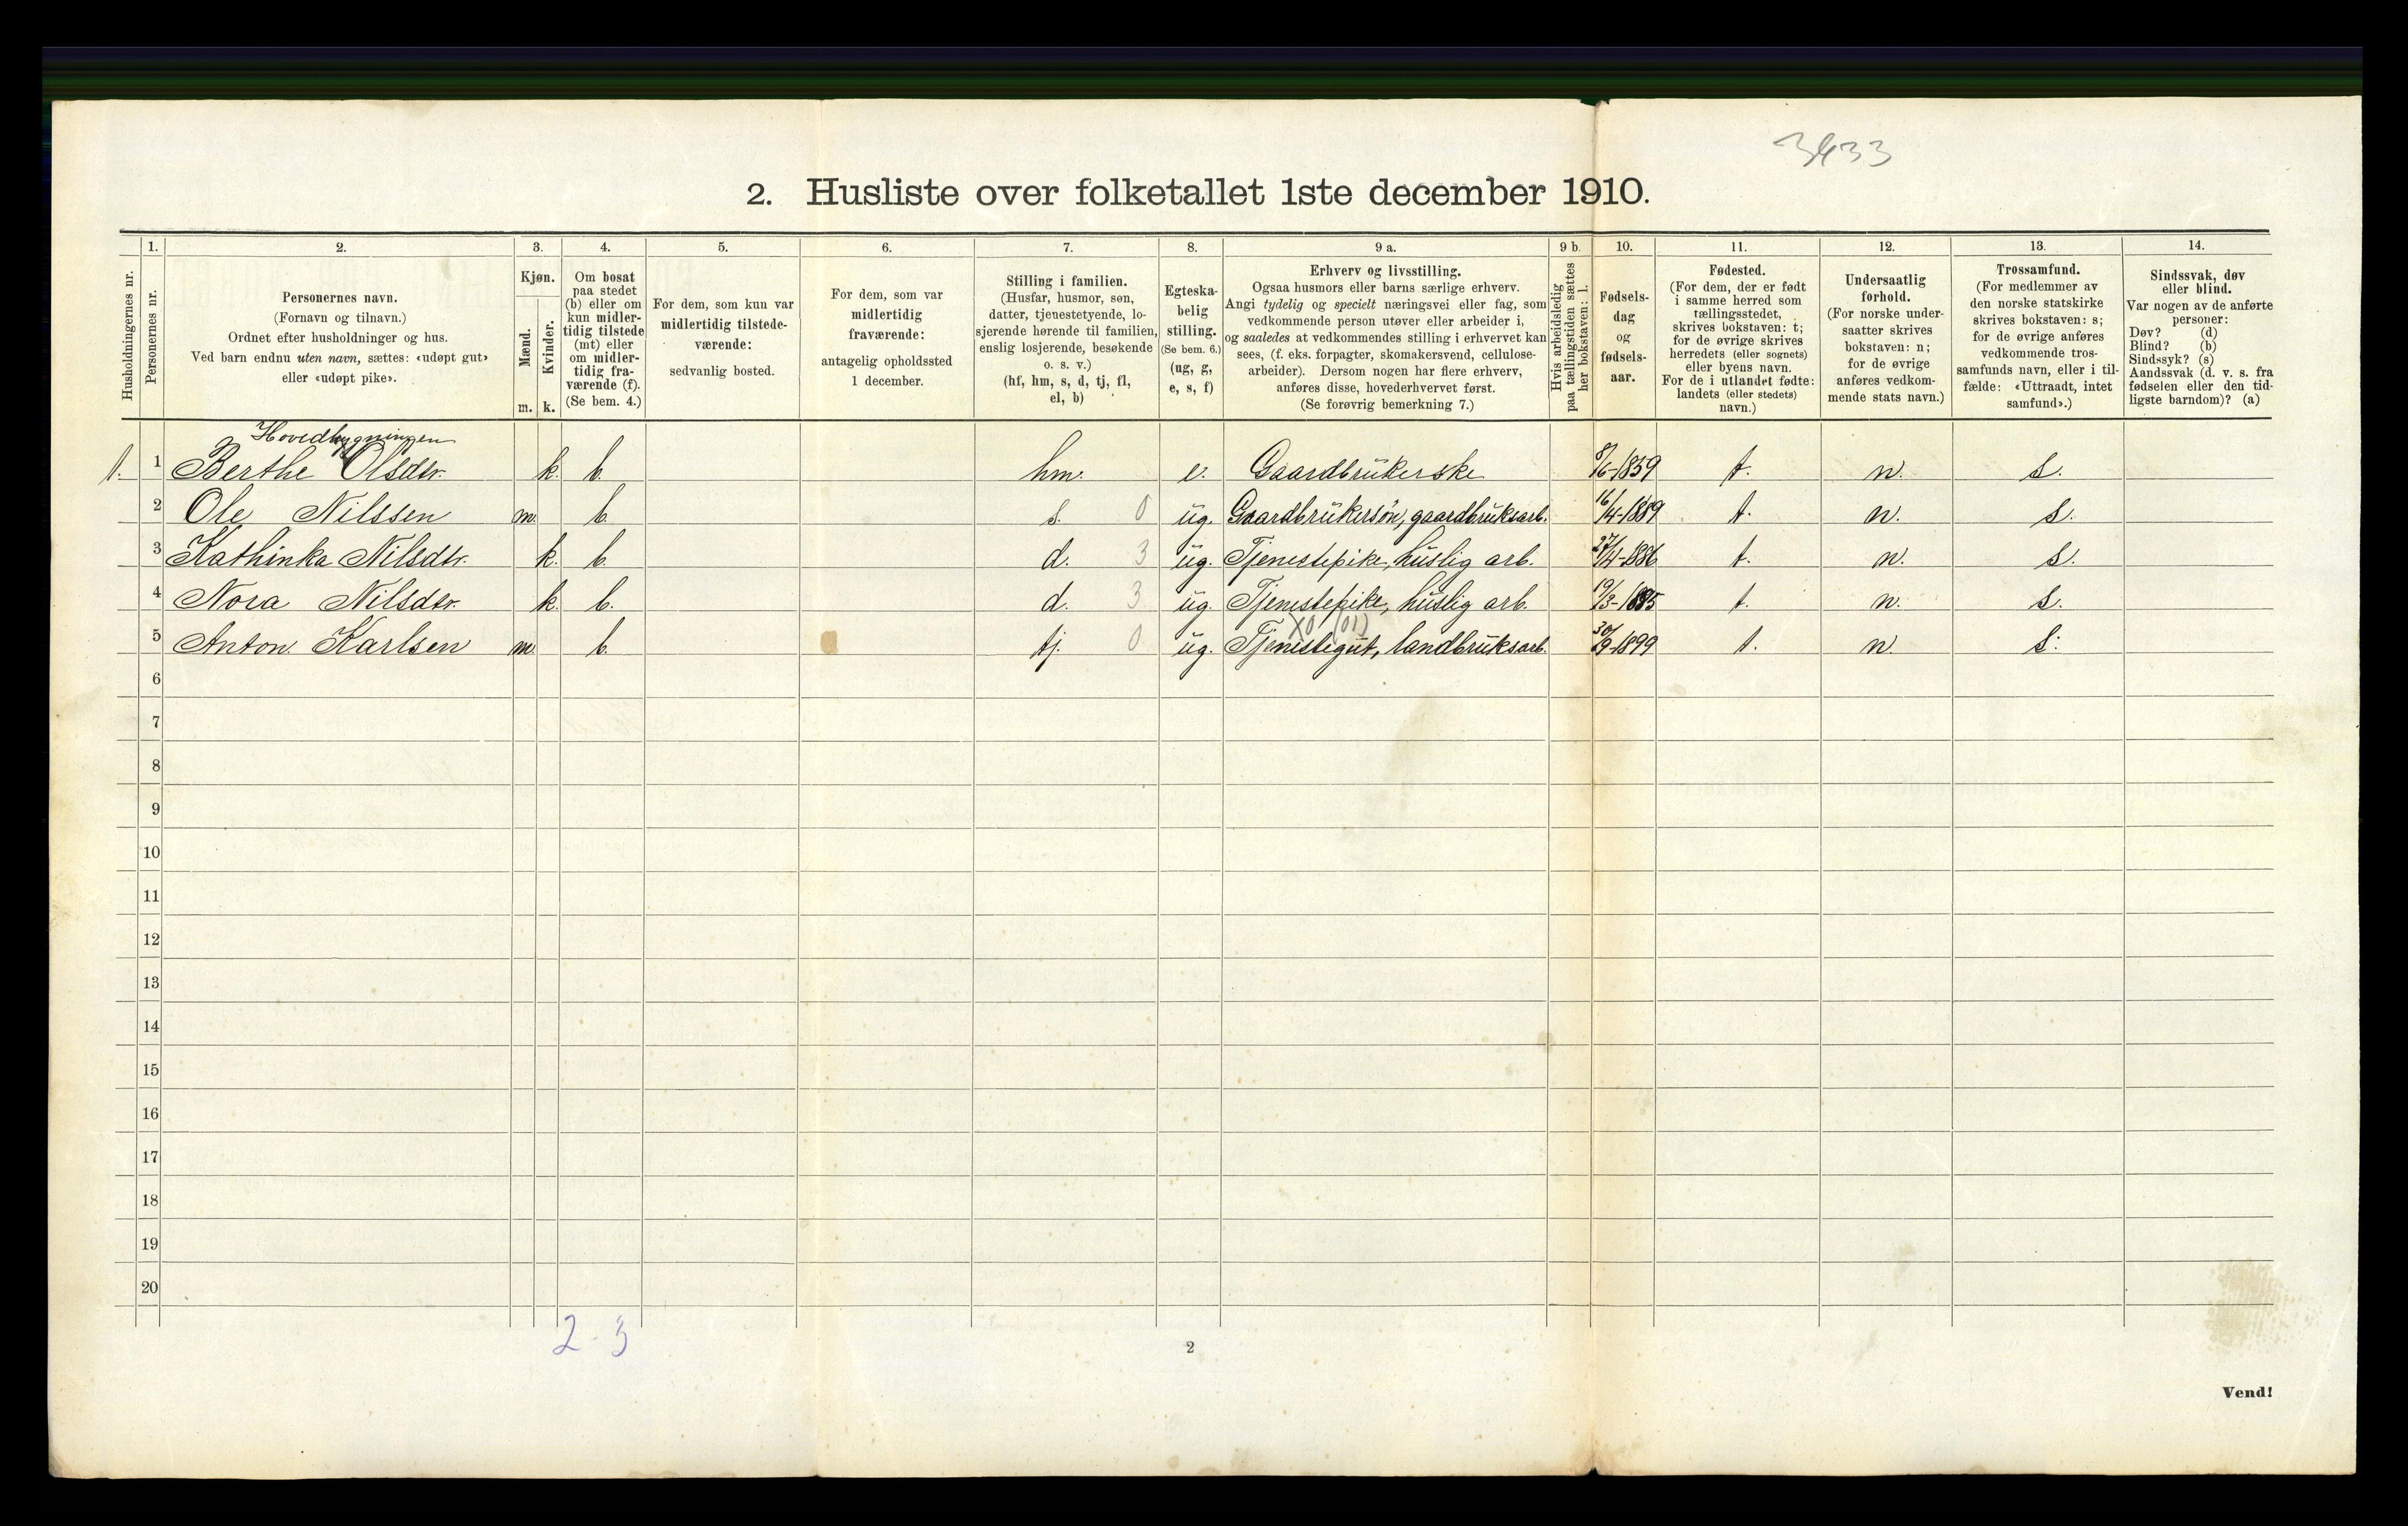 3433
2. Husliste over folketallet 1ste december 1910.
Husholdningernes nr.
1.
Personernes nr.
2.
Personernes navn.
(Fornavn og tilnavn.)
Ordnet efter husholdninger og hus.
Ved barn endnu uten navn, sættes: «udøpt gut»
eller «udøpt pike».
3.
Kjøn.
Mænd.
Kvinder.
m. k.
4.
Om bosat
paa stedet
(b) eller om
kun midler-
tidig tilstede
(mt) eller
om midler-
tidig fra-
værende (f).
(Se bem. 4.)
5.
For dem, som kun var
midlertidig tilstede-
værende:
sedvanlig bosted.
6.
For dem, som var
midlertidig
fraværende:
antagelig opholdssted
1 december.
7.
Stilling i familien.
(Husfar, husmor, søn,
datter, tjenestetyende, lo-
sjerende hørende til familien,
enslig losjerende, besøkende
o. s. v.)
(hf, hm, s, d, tj, fl,
el, b)
8.
Egteska-
belig
stilling.
(Se bem. 6.)
(ug, g,
e, s, f)
9 a.
Erhverv og livsstilling.
Ogsaa husmors eller barns særlige erhverv.
Angi tydelig og specielt næringsvei eller fag, som
vedkommende person utøver eller arbeider i,
og saaledes at vedkommendes stilling i erhvervet kan
sees, (f. eks. forpagter, skomakersvend, cellulose-
arbeider). Dersom nogen har flere erhverv,
anføres disse, hovederhvervet først.
(Se forøvrig bemerkning 7.)
9 b.
Hvis arbeidsledig
paa tællingstiden sættes
her bokstaven: l.
10.
Fødsels-
dag
og
fødsels-
aar.
11.
Fødested.
(For dem, der er født
i samme herred som
tællingsstedet,
skrives bokstaven: t;
for de øvrige skrives
herredets (eller sognets)
eller byens navn.
For de i utlandet fødte:
landets (eller stedets)
navn.)
12.
Undersaatlig
forhold.
(For norske under-
saatter skrives
bokstaven: n;
for de øvrige
anføres vedkom-
mende stats navn.)
13.
Trossamfund.
(For medlemmer av
den norske statskirke
skrives bokstaven: s;
for de øvrige anføres
vedkommende tros-
samfunds navn, eller i til-
fælde: «Uttraadt, intet
samfund».)
14.
Sindssvak, døv
eller blind.
Var nogen av de anførte
personer:
Døv? (d)
Blind? (b)
Sindssyk? (s)
Aandssvak (d. v. s. fra
fødselen eller den tid-
ligste barndom)? (a)
Hovedbygningen
1. 1 Berthe Olsdtr. k. b. hm. e. Gaardbrukerske 8/6-1859 t. n. s.
2 Ole Nilssen m. b. s. 0 ug. Gaardbrukersøn, gaardbruksarb. 16/4-1889 t. n. s.
3 Kathinka Nilsdtr. k. b. d. 3 ug. Tjenestepike, huslig arb. t. n. s.
4 Nora Nilsdtr. k. b. d. 3 ug. Tjenestepike, huslig arb. 19/3-1895 t. n. s.
X0 (01)
5 Anton Karlsen m. b. tj. 0 ug. Tjenestegut, landbruksarb. 30/9-1899 t. n. s.
6
7
8
9
10
11
12
13
14
15
16
17
18
19
20
2-3
2
Vend!